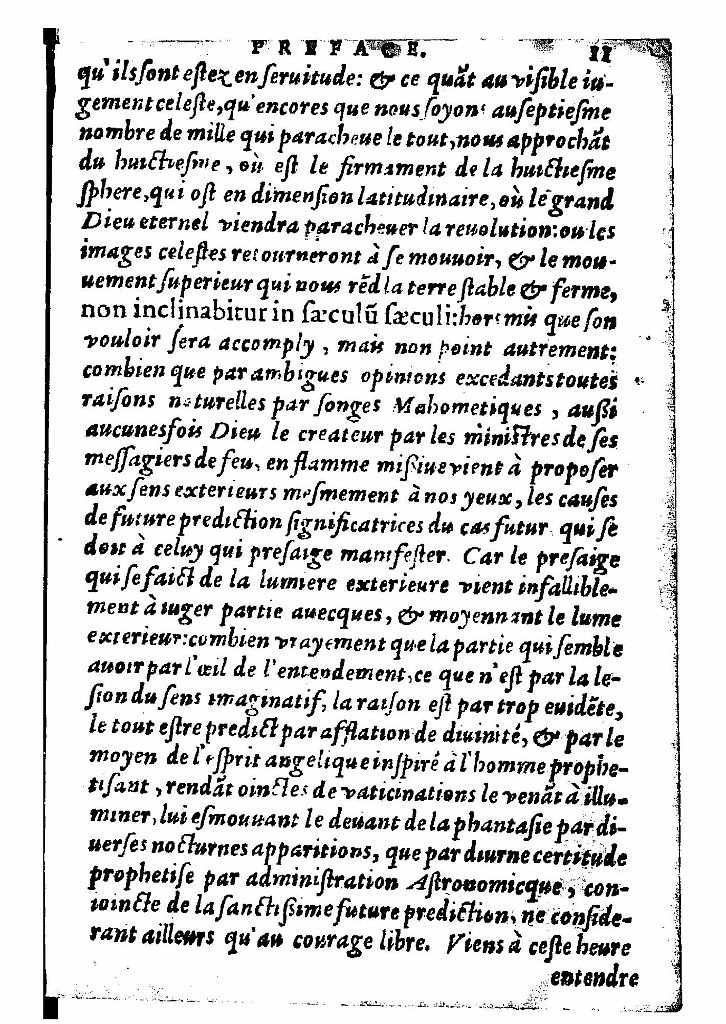 PREFACE. 11
qu'ils sont estez en seruitude: & ce quãt au visible iu-
gement celeste, qu'encores que nous soyons au septiesme
nombre de mille qui paracheue le tout, nous approchãt
du huictiesme, où est le firmament de la huictiesme
sphere, qui ost en dimension latitudinaire, où le grand
Dieu eternel viendra paracheuer la reuolution: ou les
images celestes retourneront à se mouuoir, & le mou-
uement superieur qui nous rẽd la terre stable & ferme,
non inclinabitur in sæculũ sæculi: hors mis que son
vouloir sera accomply, mais non point autrement:
combien que par ambigues opinions excedants toutes
raisons naturelles par songes Mahometiques, aussi
aucunesfois Dieu le createur par les ministres de ses
messagiers de feu, en flamme missiue vient à proposer
aux sens exterieurs mesmement à nos yeux, les causes
de future prediction significatrices du cas futur qui se
doit à celuy qui presaige manifester. Car le presaige
qui se faict de la lumiere exterieure vient infallible-
ment à iuger partie auecques, & moyennant le lume
exterieur: combien vrayement que la partie qui semble
auoir par l'œil de l'entendement, ce que n'est par la le-
sion du sens imaginatif, la raison est par trop euidẽte,
le tout estre predict par afflation de diuinité, & par le
moyen de l'esprit angelique inspiré à l'homme prophe-
tisant, rendãt oinctes de vaticinations le venãt à illu-
miner, lui esmouuant le deuant de la phantasie par di-
uerses nocturnes apparitions, que par diurne certitude
prophetise par administration Astronomicque, con-
ioincte de la sanctissime future prediction, ne conside-
rant ailleurs qu'au courage libre. Viens à ceste heure
entendre